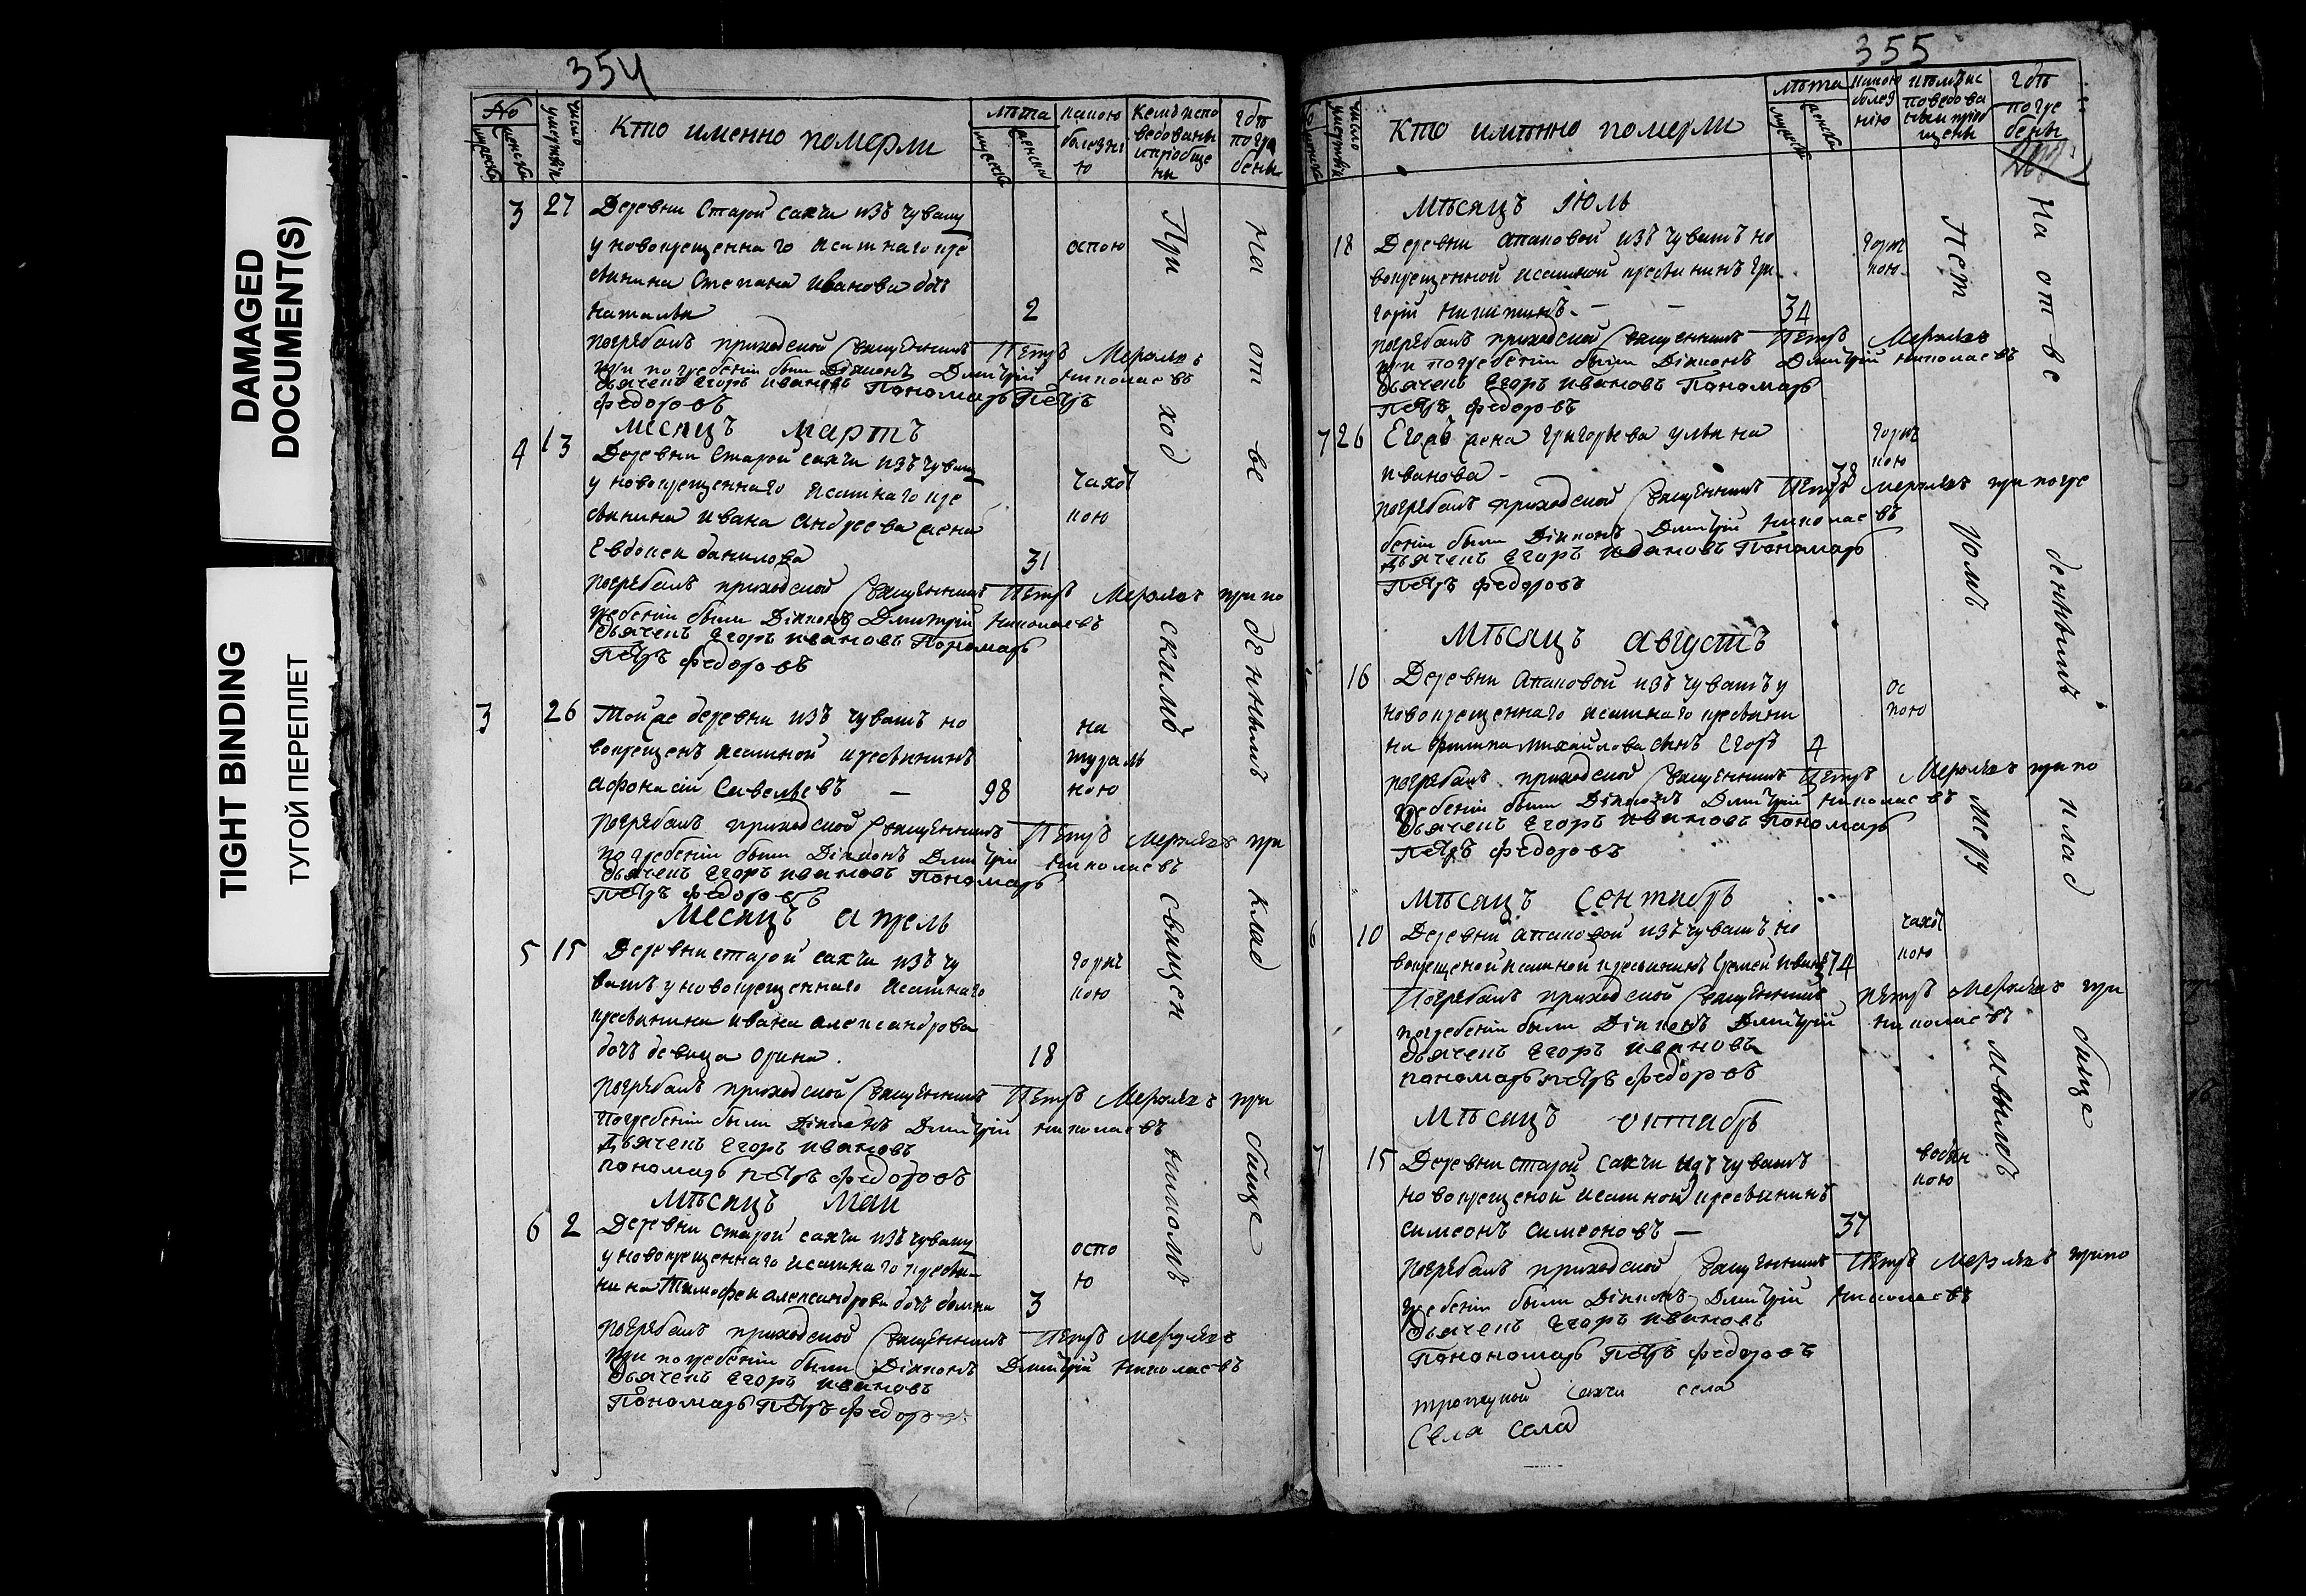 DAMAGED
DOCUMENT(S)
TIGHT BINDING
ТУГОЙ ПЕРЕПЛЕТ
354
No
мужеска
женска
число
умертвія
Кто именно померли
лѣта
мужеска
женска
какою
болезні
ю
Кемъ испо
ведованы
и пріобще
ны
гдѣ
погре
бены
3 27 Деревни Старой сахчи изъ чуваш
у новокрещеннаго ясашнаго кре
стьянина Степана Иванова дочь
наталья 2
оспою
погребалъ приходской священникъ Петръ
при погребеніи были Діяконъ Дмитрій николаевъ
дьячекъ Егоръ ивановъ Пономарь Петръ
федоровъ
месяцъ мартъ
4 13 Деревни Старой сахчи изъ чуваш
у новокрещеннаго ясашнаго кре
стьянина ивана андреева жена
Евдокея данилова 31
чахот
кою
погребалъ приходской священникъ Петръ при по
гребеніи были Діяконъ Дмитрій николаевъ
дьячекъ Егоръ ивановъ Пономарь
Петръ федоровъ
3 26 Той же деревни изъ чувашъ но
вокрещенъ ясашной крестьянинъ
афонасій Савельевъ — 98
на
тураль
ною
погребалъ приходской священникъ Петръ при
погребеніи были Діяконъ Дмитрій николаевъ
дьячекъ Егоръ ивановъ Пономарь
Петръ федоровъ
Месяцъ апрель
5 15 Деревни старой сахчи изъ чу
вашъ у новокрещеннаго ясашнаго
крестьянина ивана александрова
дочь девица орина. 18
горяч
кою
погребалъ приходской священникъ Петръ при
погребеніи были Діяконъ Дмитрій николаевъ
Дьячекъ Егоръ ивановъ
пономарь петръ федоровъ
мѣсяцъ маи
6 2 Деревни старой сахчи изъ чуваш
у новокрещеннаго ясашнаго крестья-
нина Тимофея александрова дочь домна 3
оспо
ю
погребалъ приходской священникъ Петръ
при погребеніи были Діяконъ Дмитрій николаевъ
дьячекъ Егоръ ивановъ
Пономарь Петръ федоровъ
При ход скимъ священ никомъ
на от ве денномъ клад бище
355
женска
число
умертвія
Кто имянно померли
лѣта
мужеска
женска
какою
болез
нію
кѣмъ ис
поведова
ны и пріоб
щены
гдѣ
погре
бены
Мѣсяцъ іюль
18 Деревни апаковой изъ чувашъ но
вокрещенной ясашной крестьянинъ гри-
горій никитинъ — — 34
горяч
кою
погребалъ приходской священникъ Петръ
при погребеніи были Діяконъ Дмитрій николаевъ
дьячекъ Егоръ ивановъ Пономарь
Петръ федоровъ
7 26 Егожъ жена григорьева ульяна
иванова — 38
горяч
кою
погребалъ приходской священникъ Петръ при погре
беніи были Діяконъ Дмитрій николаевъ
Дьячекъ Егоръ ивановъ Пономарь
Петръ федоровъ
Мѣсяцъ августъ
16 Деревни апаковой изъ чувашъ у
новокрещеннаго ясашнаго крестьяни
на филипа михайлова сынъ Егоръ 4
ос
пою
погребалъ приходской священникъ Петръ при по
гребеніи были Діяконъ Дмитрій николаевъ
дьячекъ Егоръ ивановъ Пономарь
Петръ федоровъ
Мѣсяцъ Сентябрь
6 10 Деревни апаковой изъ чувашъ но
вокрещеной ясашной крестьянинъ 74
чахот
кою
Погребалъ приходской священникъ петръ при
погребеніи были Діяконъ Дмитрій николаевъ
дьячекъ Егоръ ивановъ
пономарь петръ федоровъ
Мѣсяцъ октябрь
7 15 Деревни старой Сахчи изъ чувашъ
новокрещеной ясашной крестьянинъ
симеонъ симеоновъ — 37
водян
кою
погребалъ приходской священникъ Петръ при по
гребеніи были Діяконъ Дмитрій николаевъ
дьячекъ Егоръ ивановъ
Понономарь Петръ федоровъ
сахчи села
Села Села
Пет ромъ
На от ве денномъ клад бище